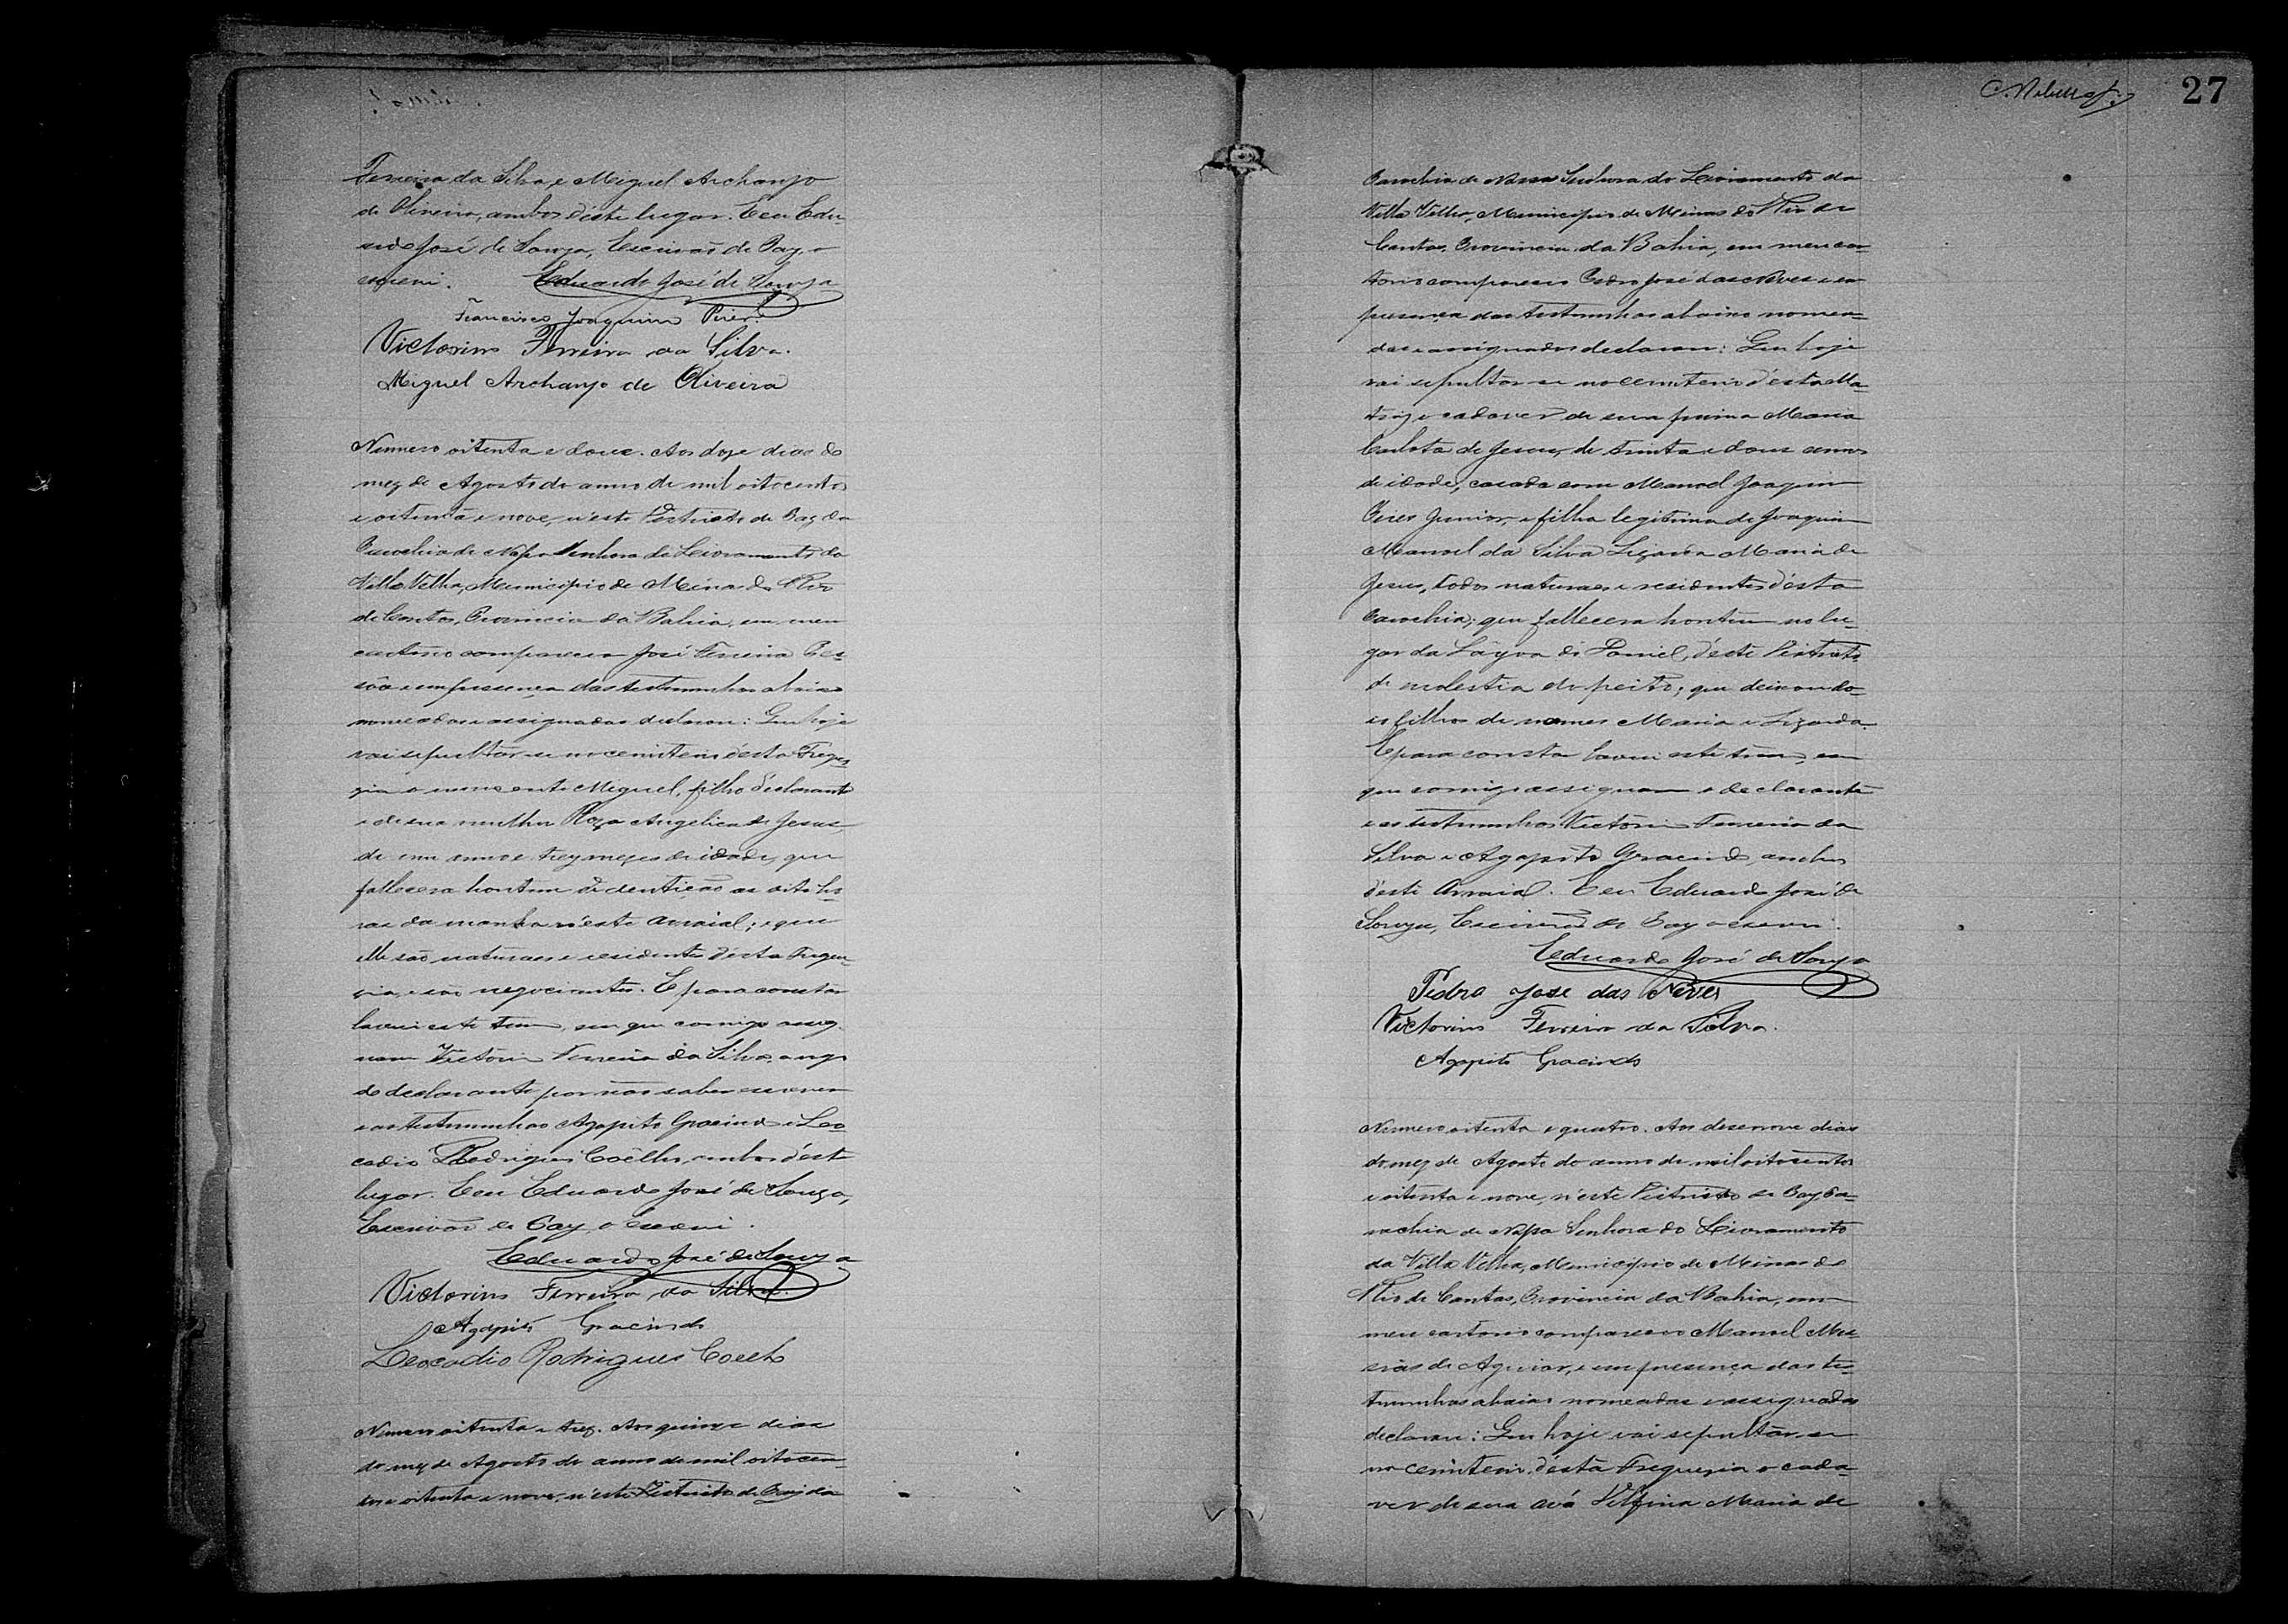 Ferreira da Silva, e Miguel Archanjo
de Oliveira, ambos d'este lugar. E eu Edu-
ardo José de Souza, Escrivão de Paz, o
escrevi. Eduardo José de Souza
Francisco Joaquim Pires
Victorino Ferreira da Silva.
Miguel Archanjo de Oliveira
Numero oitenta e dous. Aos doze dias do
mez de Agosto do anno de mil oitocentos
e oitenta e nove, n'este Districto de Paz da
Parochia de Nossa Senhora do Livramento da
Villa Velha, Municipio de Minas do Rio
de Contas, Provincia da Bahia, em meu
cartorio compareceu José Ferreira
e em presença das testemunhas abaixo
nomeadas e assignadas declarou: Que hoje
vai sepultar-se no cemiterio d'esta Fregue-
zia o innocente Miguel, filho d'eclarante
e de sua mulher Roza Angelica de Jesus,
de um anno e trez mezes de idade, que
fallecera hontem de dentição as oito ho-
ras da manhã n'este arraial; e que
elle são naturaes e residentes d'esta Fregue-
zia, e são negociantes. E para constar
lavrei este termo, em que comigo assig-
nam Victorino Ferreira da Silva a rogo
do declarante por não saber escrever
e as testemunhas Agapito Gracindo e Leo-
cadio Rodrigues Coêlho, ambos d'este
lugar. E eu Eduardo José de Souza,
Escrivão de Paz, o escrevi.
Eduardo José de Souza
Victorino Ferreira da Silva.
Agapito Gracindo
Leocadio Rodrigues Coelho
Numero oitenta e trez. Aos quinze dias
do mez de Agosto do anno de mil oitocen-
tos e oitenta e nove, n'este Districto de Paz da
27
Parochia de Nossa Senhora do Livramento da
Villa Velha, Municipio de Minas do Rio de
Contas, Provincia da Bahia, em meu car-
torio compareceu Pedro José das Neves e em
presença das testemunhas abaixo nomea-
das e assignadas declarou: Que hoje
vai sepultar-se no cemiterio d'esta Ma-
triz o cadaver de sua prima Maria
Carlota de Jesus, de trinta e dous annos
de idade, casada com Manoel Joaquim
Pires Junior, e filha legitima de Joaquim
Manoel da Silva Maria de
Jesus, todos naturaes e residentes d'esta
Parochia; que fallecera hontem no lu-
gar da Lagoa do Daniel, d'este Districto
de molestia do peito; que deixou do-
is filhos de nomes Maria e
E para constar lavrei este termo, em
que comigo assignam o declarante
e as testemunhas Victorino Ferreira da
Silva e Agapito Gracindo, ambos
d'este Arraial. E eu Eduardo José de
Souza, Escrivão de Paz o escrevi.
Eduardo José de Souza
Pedro José das Neves
Victorino Ferreira da Silva.
Agapito Gracindo
Numero oitenta e quatro. Aos desenove dias
do mez de Agosto do anno de mil oitocentos
e oitenta e nove, n'este Districto de Paz Pa-
rochia de Nossa Senhora do Livramento
da Villa Velha, Municipio de Minas do
Rio de Contas, Provincia da Bahia, em
meu cartorio compareceu Manoel Mes-
sias de Aguiar, e em presença das tes-
temunhas abaixo nomeadas e assignadas
declarou: Que hoje vai sepultar-se
no cemiterio d'esta Freguezia o cada-
ver de sua avó Delfina Maria de